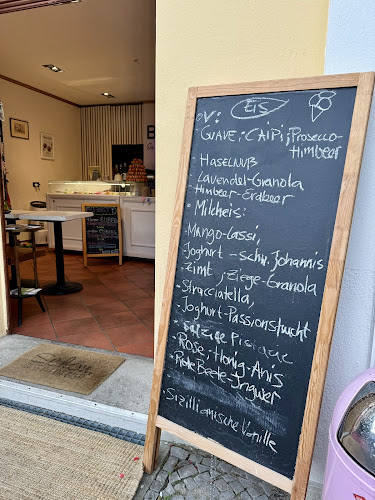 EIS
V:
GUAVE; CAIPI; PROSECCO-
HIMBEER
- HASELNUß
- LAVENDEL-GRANOLA
- HIMBEER-ERDBEER
• MILCHEIS:
- MANGO-LASSI,
- JOGHURT - SCHW. JOHANNIS
- ZIMT; ZIEGE-GRANOLA
- STRACCIATELLA,
JOGHURT-PASSIONSFRUCHT
- SALZIGE PISTAZIE
- ROSE; HONIG-ANIS
- ROTE BEETE-INGWER
- SIZILLIANISCHE VANILLE